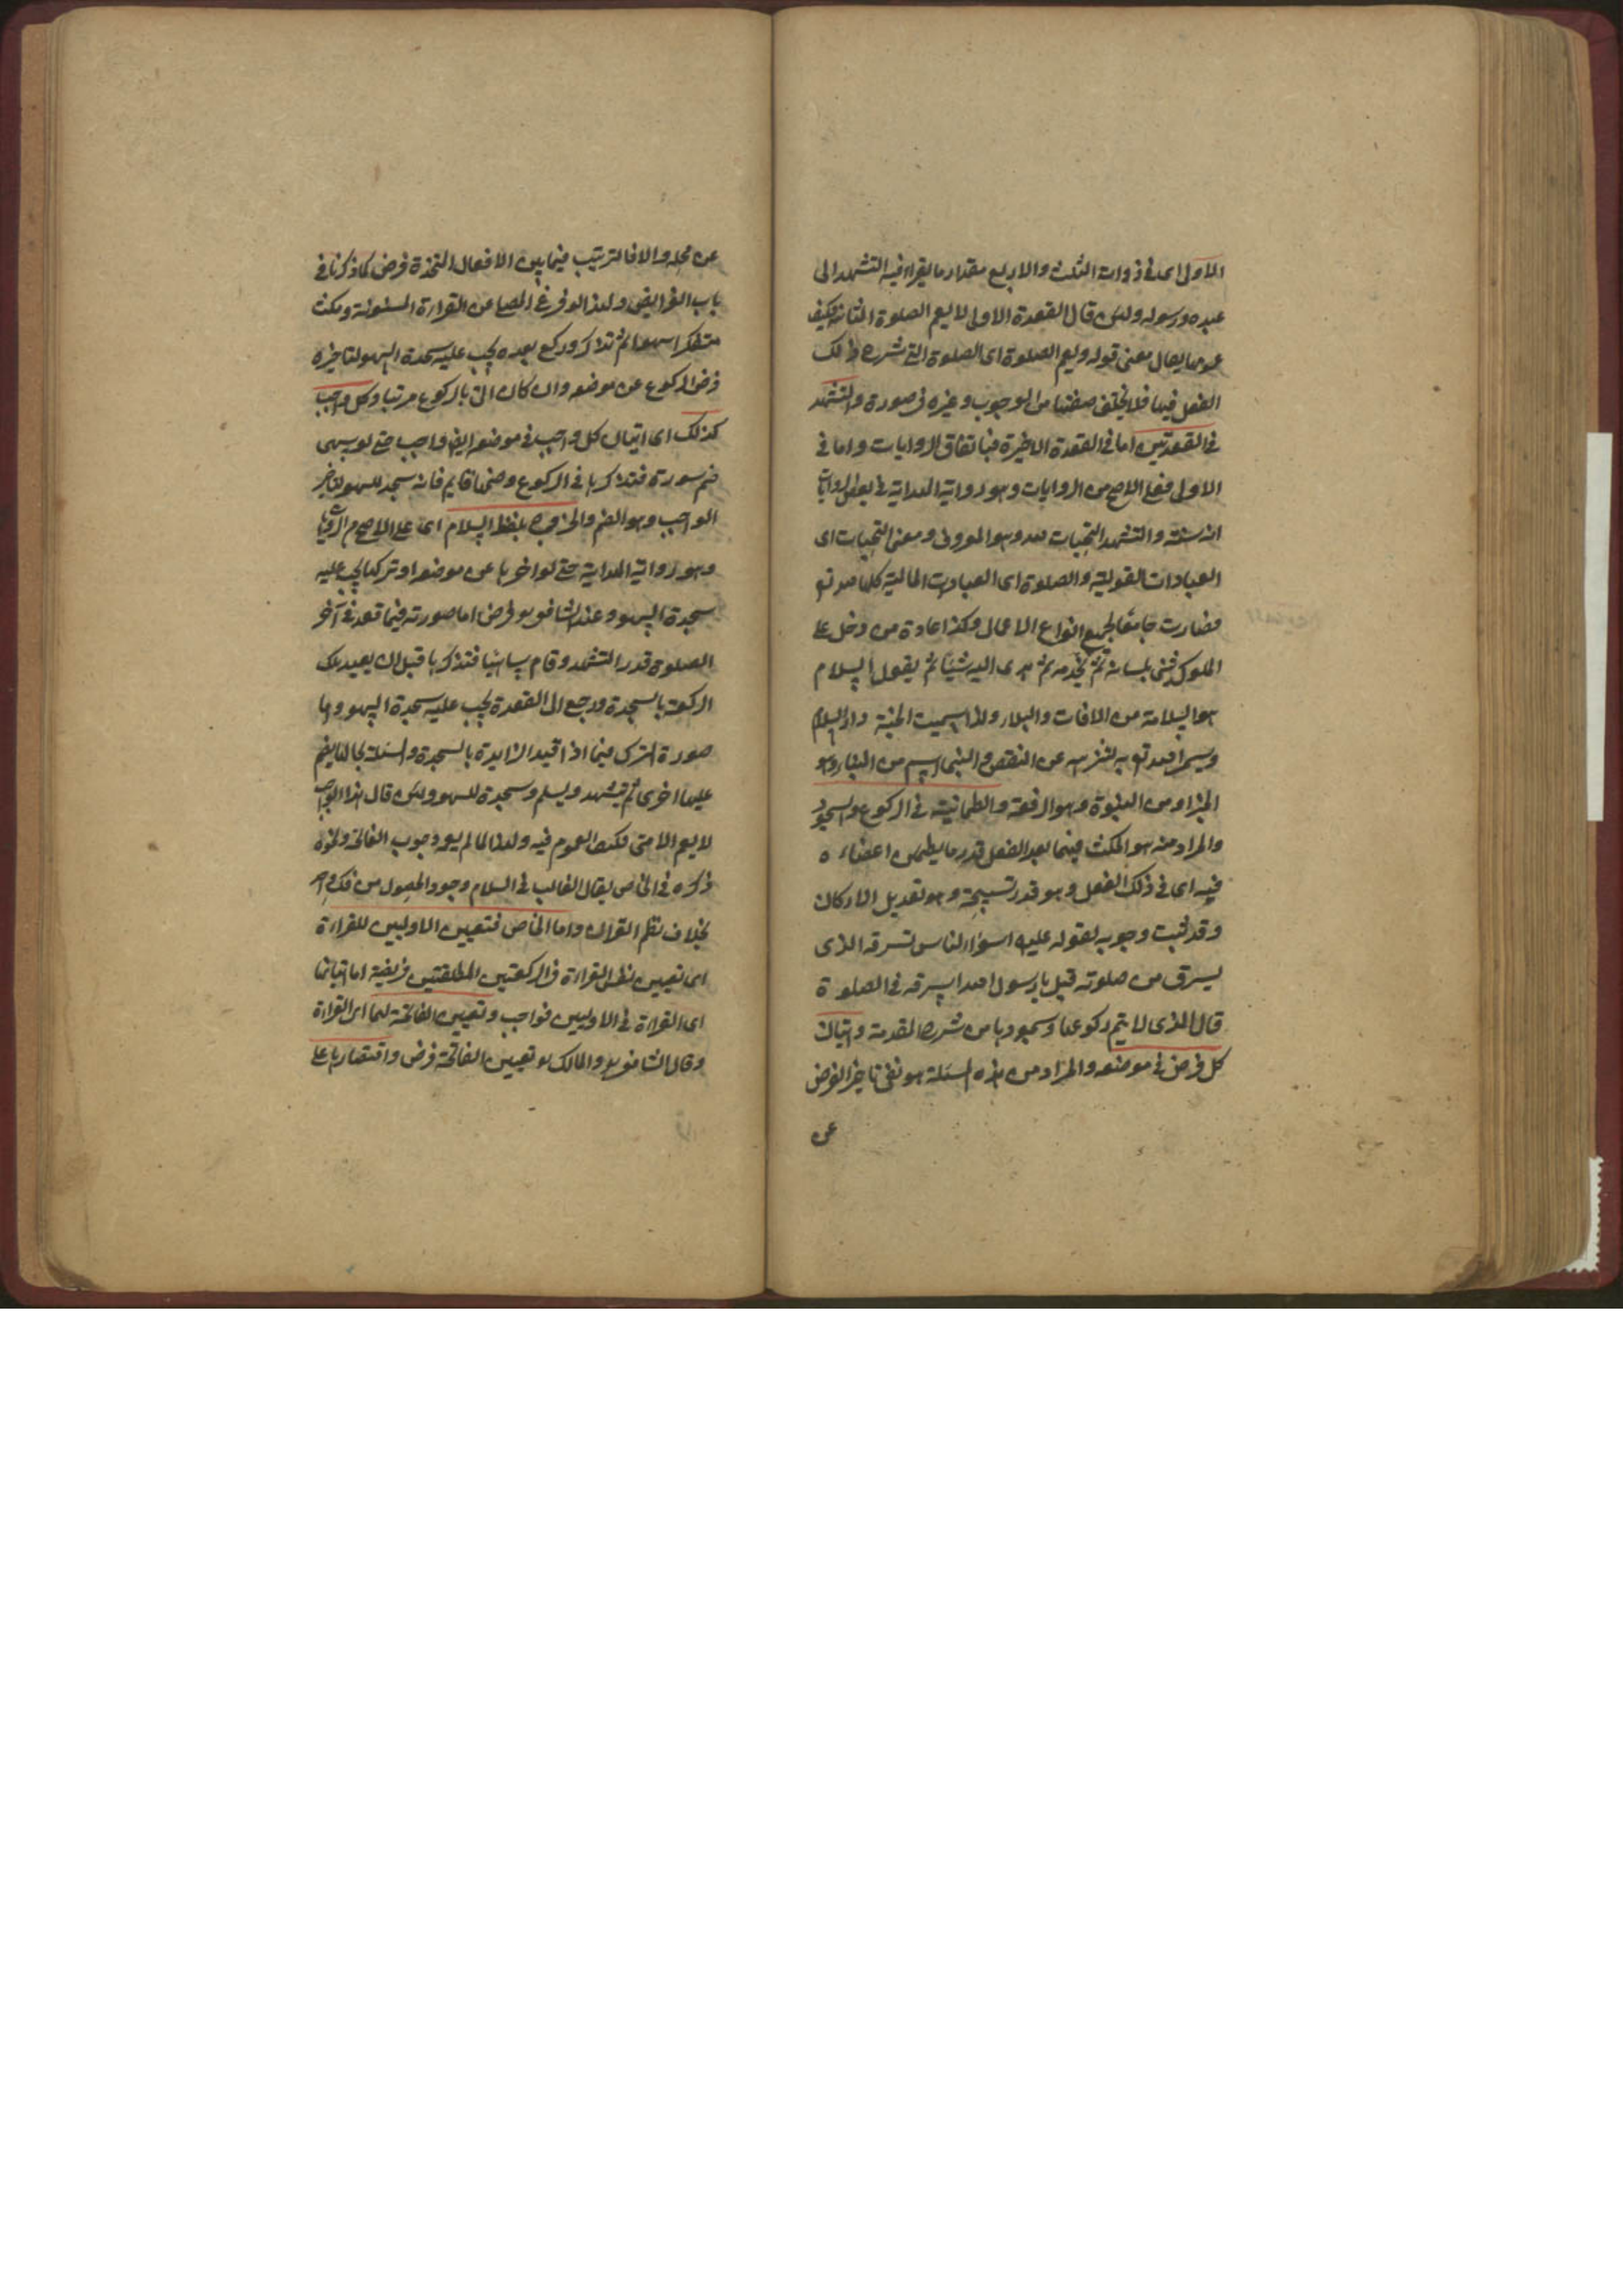 الاولى اى فى ذوات الثلث والاربع مقدار ما يقراء فيه التشهد الى
عبده ورسوله ولئن قال القعدة الاولى لا يعم الصلوة الثنائية فكيف
عمومها يقال معنى قوله ويعم الصلوة اى الصلوة التى شرع ذلك
الفعل فيها فلا يختلف صفتها من الوجوب وغيره فى صورة والتشهد
فى القعدتين اما فى القعدة الاخيرة فباتفاق الروايات واما فى
الاولى فعلى الاصح من الروايات وهو رواية الهداية فى بعض الروايات
انه سنة والتشهد التحيات لله وهو المعروف ومعنى التحيات اى
العبادات القولية والصلوة اى العبادات المالية كلها لله تع
فصارت جامعا لجميع انواع الاعمال وهكذا عادة من دخل على
الملوك فثنى بلسانه ثم يخدمه ثم يهدى اليه شيئا ثم يقول السلام
هو السلامة من الافات والبلاء ولذا سميت الجنة دار السلام
وسمى الله تع به لتنزهه عن النقص والنبى اسم من النباء وهو
الخبر او من النبوة وهو الرفعة والطمانية فى الركوع والسجود
والمراد منه هو المكث فيما بعد الفعل قدر ما يطمئن اعضاءه
فيه اى فى ذلك الفعل وهو قدر تسبيحة وهو تعديل الاركان
وقد ثبت وجوبه لقوله عليه اسوء الناس سرقة الذى
يسرق من صلوته قيل يا رسول الله ايسرقه فى الصلوة
قال الذى لا يتم ركوعها وسجودها من شرح المقدمة واتيان
كل فرض فى موضعه والمراد من هذه المسئلة هو نفى تاخير الفرض
عن
عن محله والا فالترتيب فيما بين الافعال المتحدة فرض كما ذكرنا فى
باب الفرايض ولهذا لو فرغ المصلى عن القراءة المسنونة ومكث
متفكرا سهوا ثم تذكر وركع بعده يجب عليه سجدة السهو لتاخيره
فرض الركوع عن موضعه وان كان اتى بالركوع مرتبا وكل واجب
كذلك اى اتيان كل واجب فى موضعه ايضا واجب حتى لو سهى
ضم سورة فتذكرها فى الركوع وضمها قايم فانه سجد للسهو لتاخير
الواجب وهو الضم والخروج بلفظ السلام اى على الاصح من الروايات
وهو رواية الهداية حتى لو اخرها عن موضعها او تركها يجب عليه
سجدة السهو وعند الشافعى هو فرض اما صورته فيما قعد فى آخر
الصلوة قدر التشهد وقام ساهيا فتذكرها قبل ان يعيد تلك
الركعة بالسجدة ورجع الى القعدة يجب عليه سجدة السهو واما
صورة الترك فيما اذا قيد الزايدة بالسجدة والمسئلة بحالها يضم
عليها اخرى ثم يتشهد ويسلم وسجدة للسهو ولئن قال هذا الواجب
لا يعم الامى فكيف العموم فيه ولهذا لما لم يعم وجوب الفاتحة ونحوه
ذكره فى الخاص يقال الغالب فى السلام وجود الحصول من كل احد
بخلاف نظم القران واما الخاص فتعيين الاوليين للقراءة
اى تعيين نفس القراءة فى الركعتين المطلقتين فريضة اما اتيانها
اى القراءة فى الاوليين فواجب وتعيين الفاتحة لها اى القراءة
وقال الشافعى والمالك تعيين الفاتحة فرض واقتصارها على